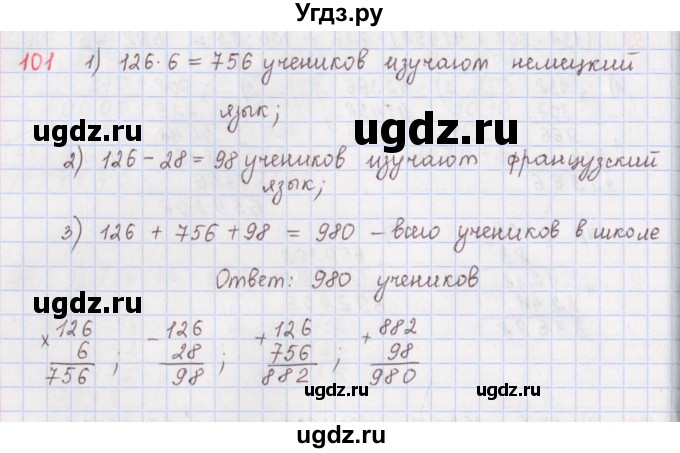 Угдз.ру
101 1) 126·6 = 756 учеников изучают немецкий
язык;
ugdz.ru ugdz.ru
2) 126 - 28 = 98 учеников изучают французский
язык;
ugdz.ru ugdz.ru
3) 126 + 756 + 98 = 980 - всего учеников в школе
Ответ: 980 учеников
ugdz.ru ugdz.ru
× 126 - 126 + 126 + 882
6 ; 28 ; 756 ; 98
756 98 882 980
ugdz.ru ugdz.ru
ugdz.ru